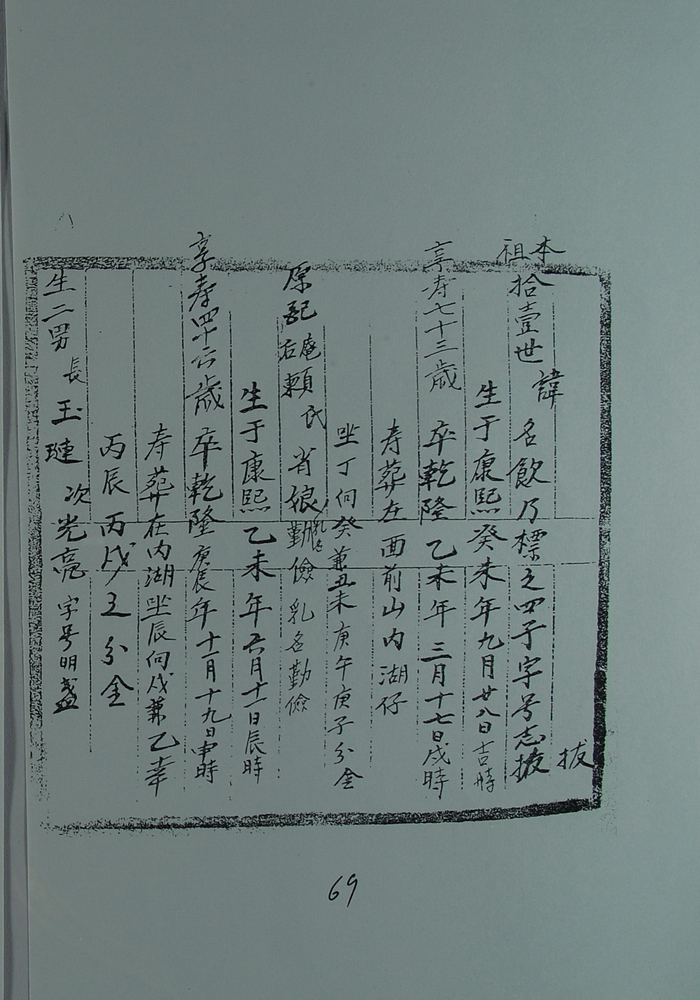 本祖拾壹世 諱 名飲乃標之四子字号志拔 拔
生于康熙癸未年九月廿八日吉時
享寿七十三歲 卒乾隆乙未年三月十七日戌時
寿葬在面前山内湖仔
坐丁向癸兼丑未庚午庚子分金
原配庵右賴氏省娘勤儉乳名勤儉
生于康熙乙未年六月十一日辰時
享寿四十六歲 卒乾隆庚辰年十一月十九日申時
寿葬在内湖坐辰向戌兼乙辛
丙辰丙戌之分金
生二男長玉璉次光亮字号明盛
69